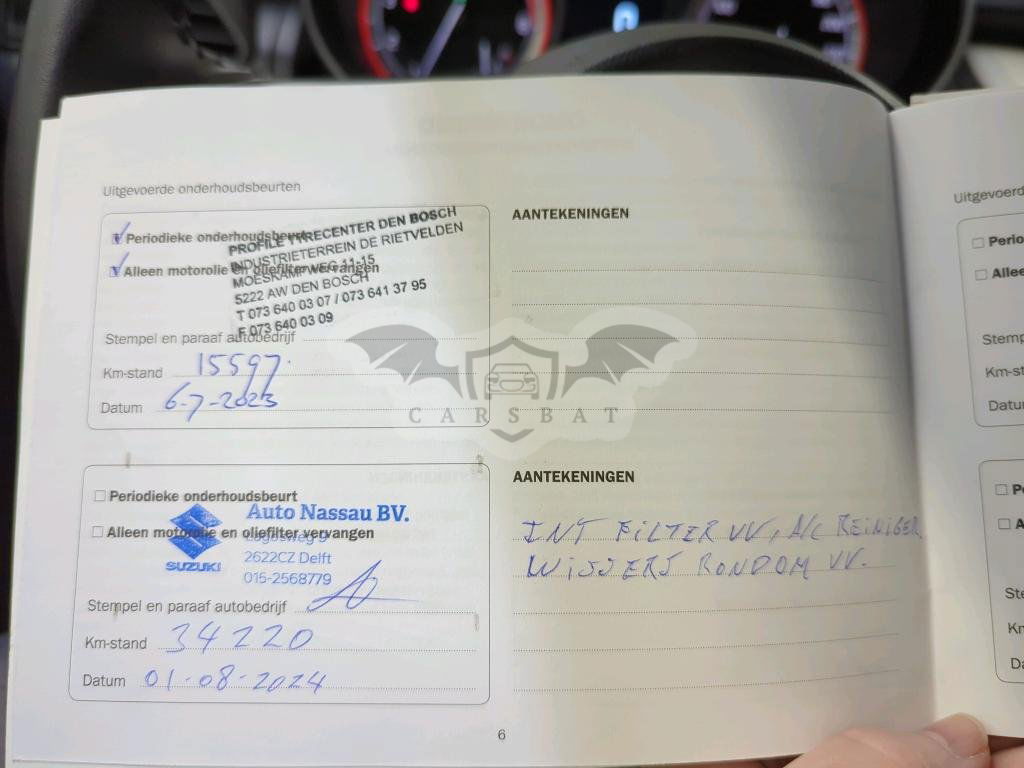 Uitgevoerde onderhoudsbeurten
Periodieke onderhoudsbeurt
PROFILE TYRECENTER DEN BOSCH
INDUSTRIETERREIN DE RIETVELDEN
Alleen motorolie en oliefilter vervangen
MOESKAMPWEG 11-15
5222 AW DEN BOSCH
T 073 640 03 07 / 073 641 37 95
F 073 640 03 09
Stempel en paraaf autobedrijf
Km-stand 15597
Datum 6-7-2023
AANTEKENINGEN
CARSBAT
Periodieke onderhoudsbeurt
Auto Nassau BV.
Alleen motorolie en oliefilter vervangen
2622CZ Delft
SUZUKI
015-2568779
Stempel en paraaf autobedrijf
Km-stand 34220
Datum 01-08-2024
AANTEKENINGEN
INT FILTER VV, A/C REINIGER
WISSERS RONDOM VV.
6
Uitgevoerd
Perio
Allee
Stemp
Km-st
Datu
Pe
A
Ste
Km
Da